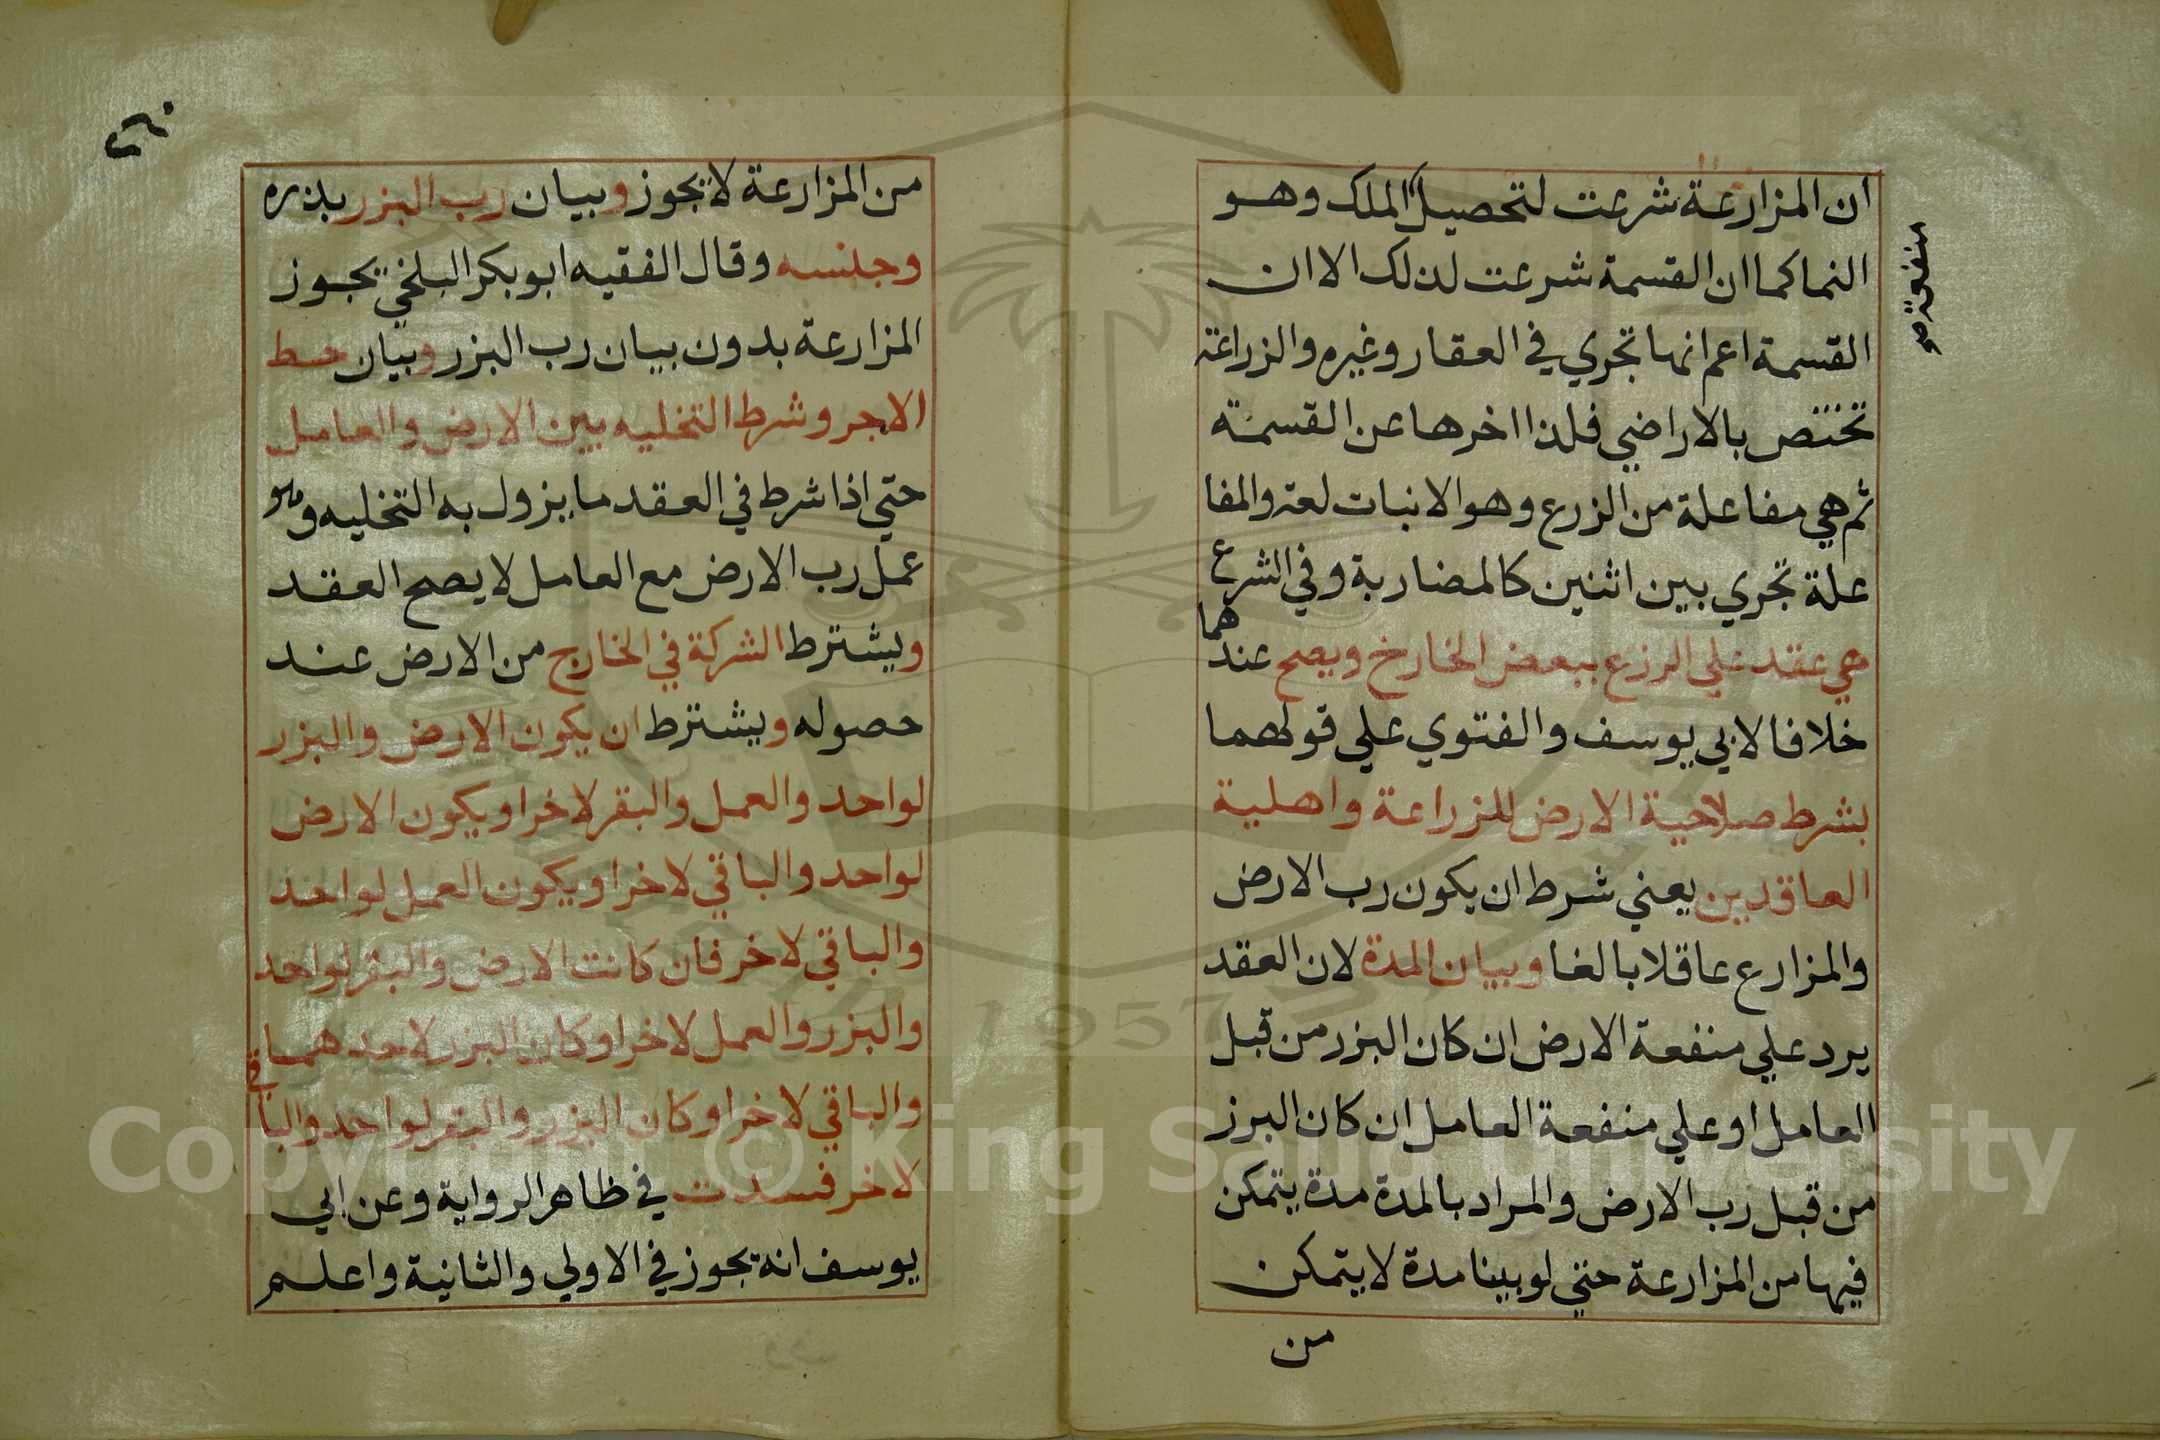 ان المزارعة شرعت لتحصيل الملك وهو
النما كما ان القسمة شرعت لذلك الا ان
القسمة اعم انها تجري في العقار وغيره والزراعة
تختص بالاراضي فلذا اخرها عن القسمة
ثم هي مفاعلة من الزرع وهو الانبات لغة والمفا
علة تجري بين اثنين كالمضاربة وفي الشرع
هي عقد علي الرزع ببعض الخارخ ويصح عندهما
خلافا لابي يوسف والفتوي علي قولهما
بشرط صلاحية الارض للزراعة واهلية
العاقدين يعني شرط ان يكون رب الارض
والمزارع عاقلا بالغا وبيان المدة لان العقد
يرد علي منفعة الارض ان كان البزر من قبل
العامل او علي منفعة العامل ان كان البرز
من قبل رب الارض والمراد بالمدة مدة يتمكن
فيها من المزارعة حتي لو بينا مدة لا يتمكن
من
منفعة صح
٤٦٠
من المزارعة لا يجوز وبيان رب البزر بذره
وجلنسه وقال الفقيه ابو بكر البلخي يجوز
المزارعة بدون بيان رب البزر وبيان حسط
الاجر وشرط التخليه بين الارض والعامل
حتي اذا شرط في العقد ما يزول به التخليه وهو
عمل رب الارض مع العامل لا يصح العقد
ويشترط الشركة في الخارج من الارض عند
حصوله ويشترط ان يكون الارض والبزر
لواحد والعمل والبقر لاخر او يكون الارض
لواحد والباقي لاخر او يكون العمل لواحد
والباقي لاخر فان كانت الارض والبقر لواحد
والبزر والعمل لاخر او كان البزر لاحدهما
والباقي لاخر او كان البزر والبقر لواحد والباقي
لاخر فسدت في ظاهر الرواية وعن ابي
يوسف انه يجوز في الاولي والثانية واعلم
Copyright © King Saud University
1957